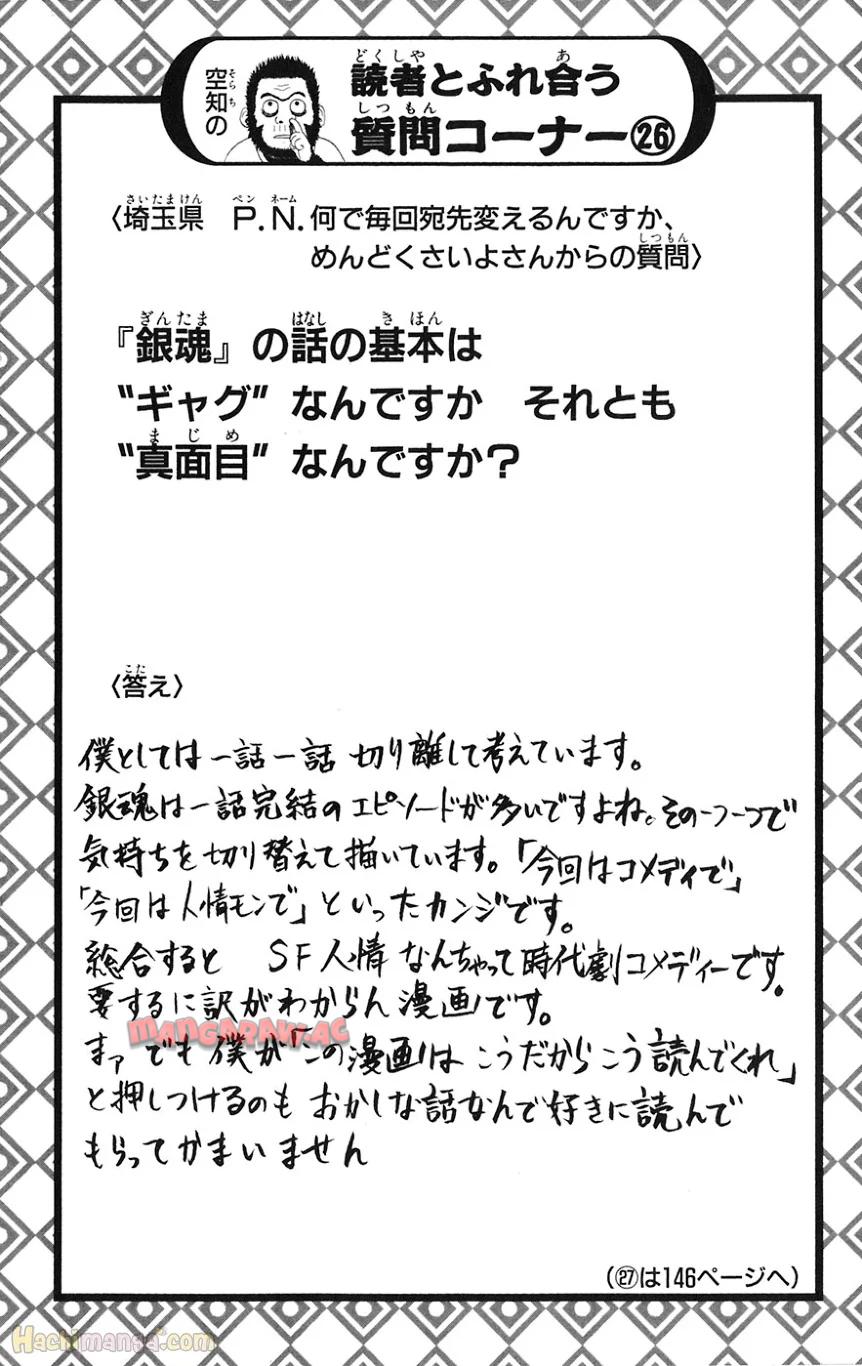 空知の
読者とふれ合う
質問コーナー㉖
〈埼玉県 P.N.何で毎回宛先変えるんですか、
めんどくさいよさんからの質問〉
『銀魂』の話の基本は
“ギャグ” なんですか それとも
“真面目” なんですか？
〈答え〉
僕としては一話一話 切り離して考えています。
銀魂は一話完結のエピソードが多いですよね。その一つ一つで
気持ちを切り替えて描いています。「今回はコメディで」
「今回は人情モンで」といったカンジです。
総合すると SF人情なんちゃって時代劇コメディーです。
要するに訳がわからん漫画です。
まァ でも僕が「この漫画はこうだからこう読んでくれ」
と押しつけるのもおかしな話なんで好きに読んで
もらってかまいません
(㉗は146ページへ)
MANGARAW.AC
Hachimanga.com